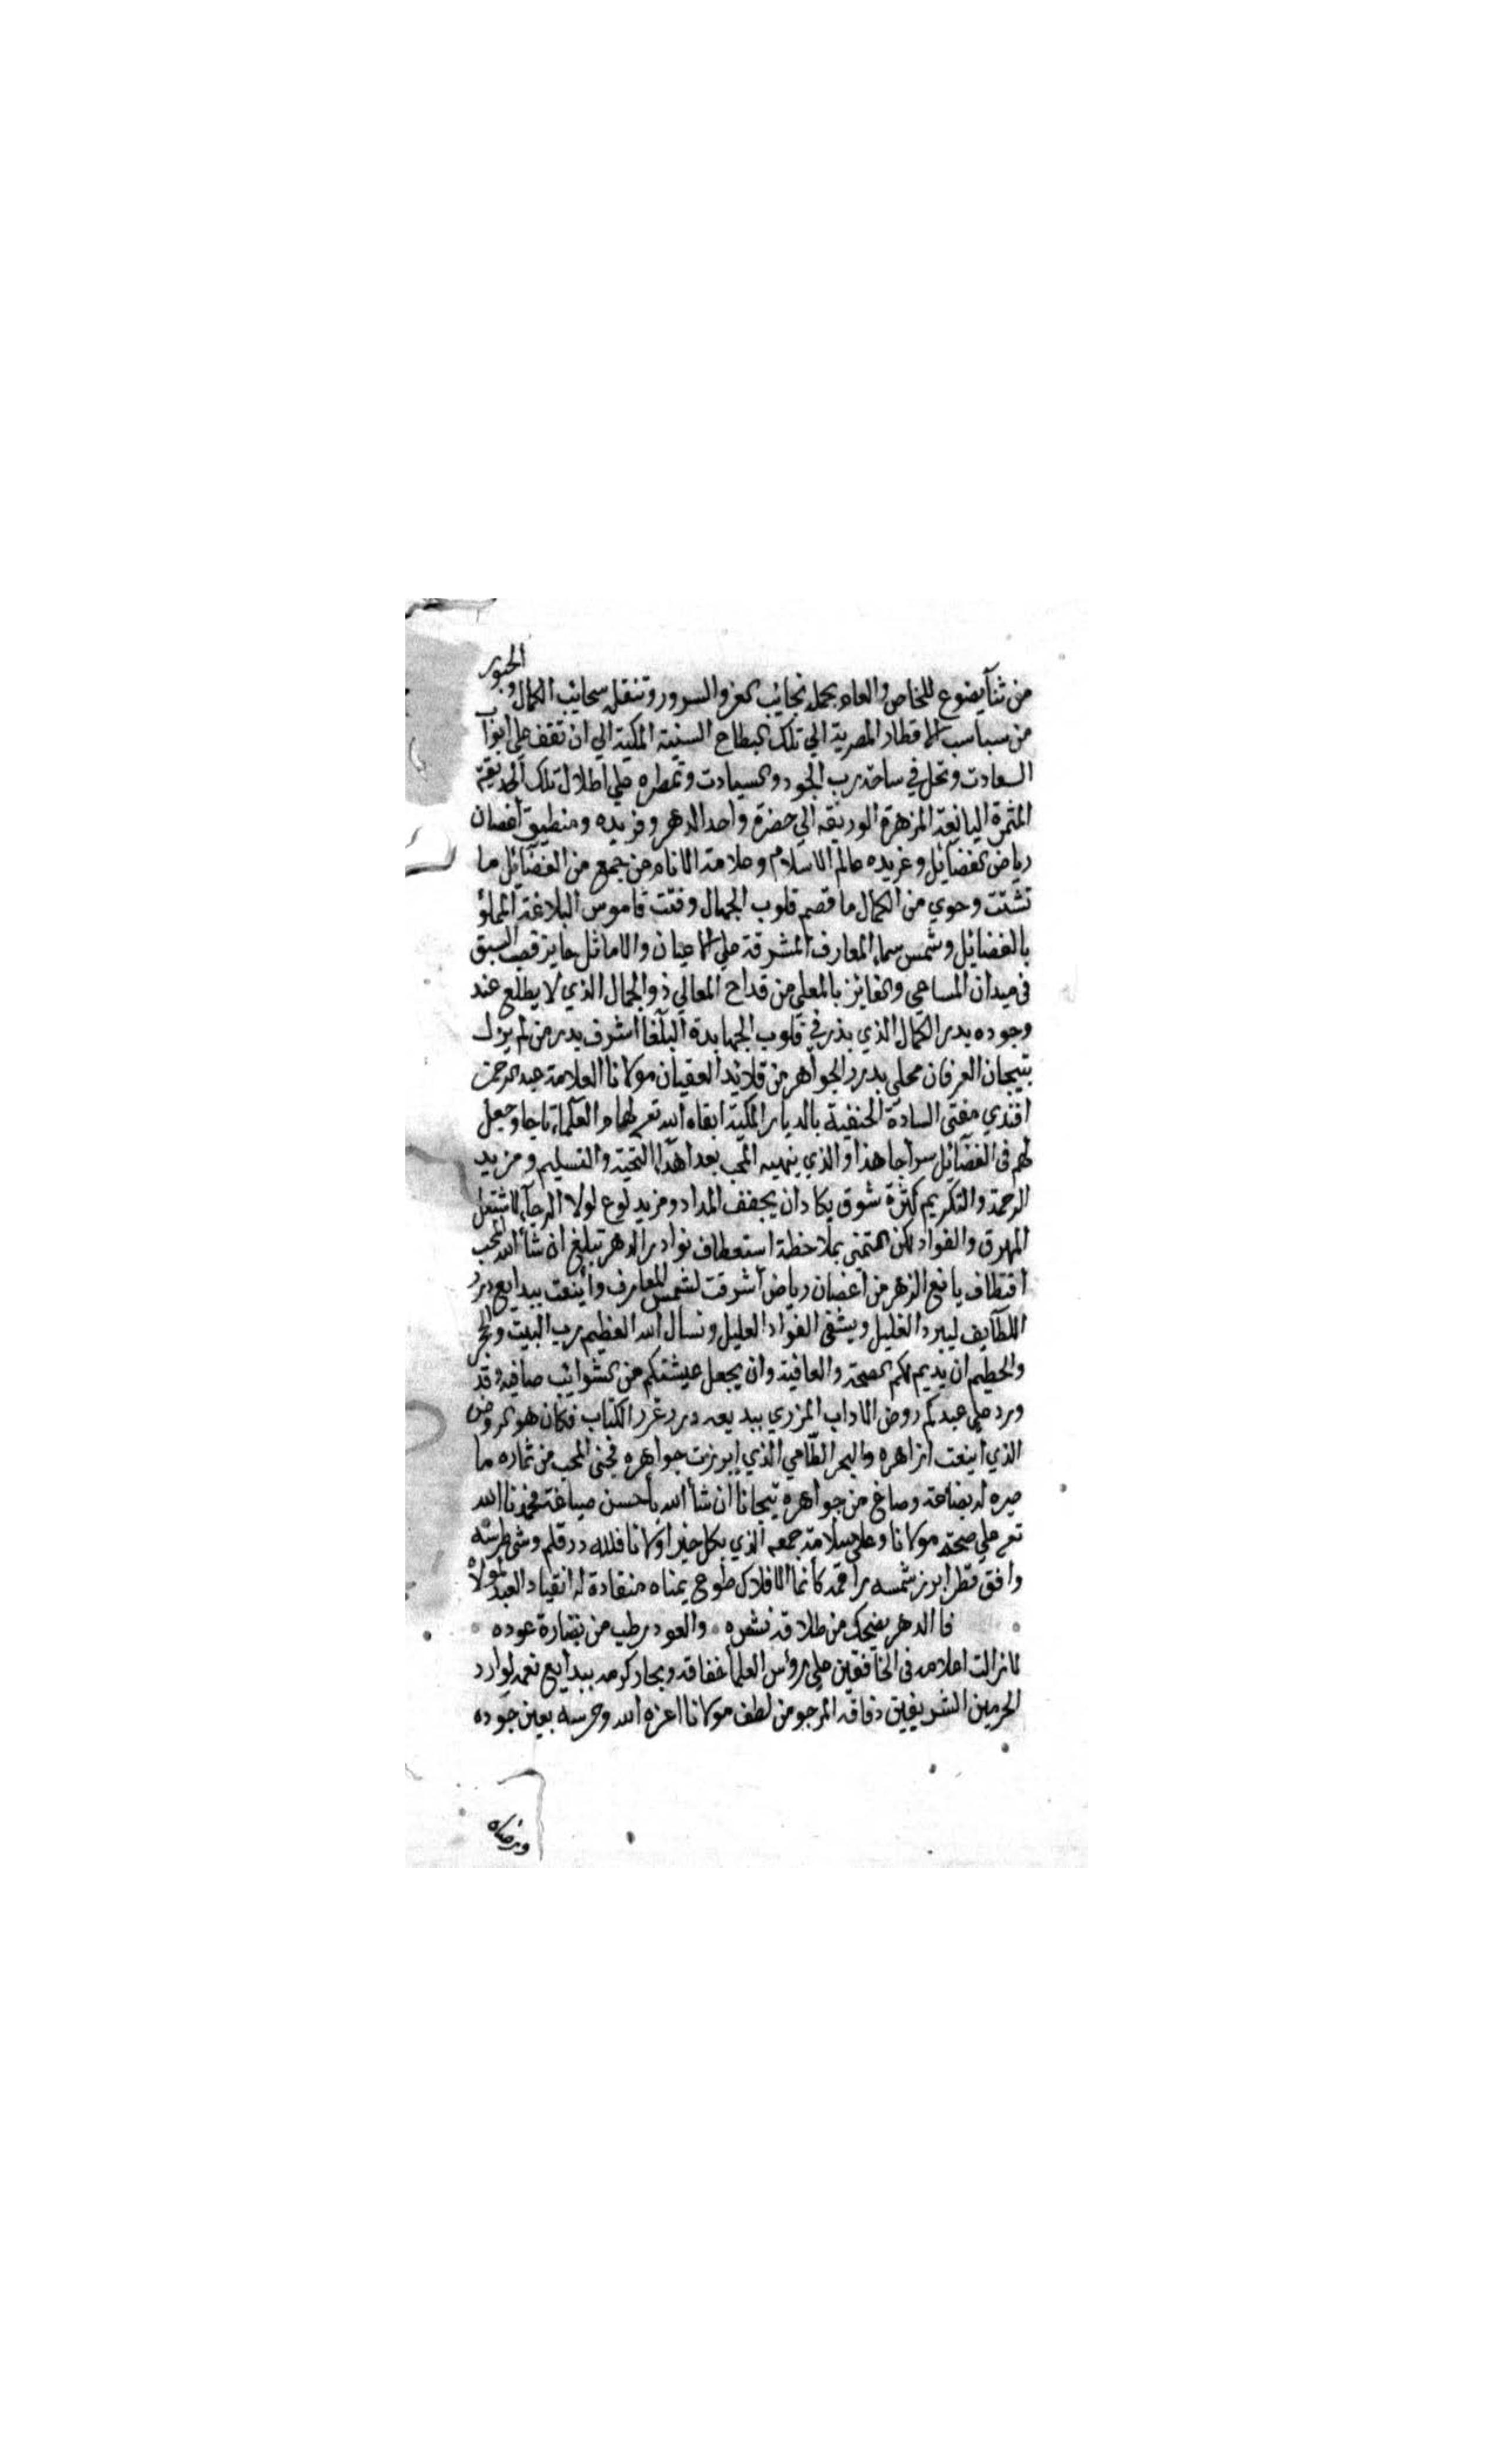 من ثنآ يضوع للخاص والعام بحمله نجائب العز والسرور وتنقله سحائب الكمال والحبور
من سباسب الاقطار المصرية الي تلك البطاح السنية المكية الي ان تقف علي ابواب
السعادت وتحل في ساحة رب الجود والسيادت وتمطره علي اطلال تلك الحديقة
المثمرة اليانعة المزهرة الوريقه الي حضرة واحد الدهر وفريده ومنطيق اغصان
رياض الفضائل وغريده عالم الاسلام وعلامة الانام من جمع من الفضائل ما
تشتت وحوي من الكمال ما قصم قلوب الجهال وفتت قاموس البلاغة المملؤ
بالفضايل وشمس سماء المعارف المشرقة علي الاعيان والاماثل حايز قصب السبق
في ميدان المساعي والفائز بالمعلي من قداح المعالي ذو الجمال الذي لا يطلع عند
وجوده بدر الكمال الذي بذر في قلوب الجهابدة البلغا اشرف بدر من لم يزل
بتيجان العرفان محلي بدرر الجواهر من قلائد العقيان مولانا العلامة عبد الرحمن
افندي مفتي السادة الحنفية بالديار المكية ابقاه الله تعم لهام العلماء تاجا وجعل
لهم في الفضآئل سراجا هذا والذي ينهيه المحب بعد اهدآ التحية والتسليم ومزيد
الرحمة والتكريم كثرة شوق يكاد ان يجفف المداد ومزيد لوع لولا الرجآء لاشتعل
المهرق والفواد لكن التمني بملاحظة استعطاف نوادر الدهر تبلغ ان شآ الله المحب
اقتطاف يانع الزهر من اغصان رياض اشرقت لشمس المعارف وأينعت ببدايع درر
اللطآيف ليبرد الغليل ويشفي الفواد العليل ونسال الله العظيم رب البيت والحجر
والحطيم ان يديم لكم الصحة والعافية وان يجعل عيشتكم من الشوائب صافيه وقد
ورد علي عبدكم روض الاداب المزري ببديعه درر غرر الكتاب فكان هو الروض
الذي اينعت ازاهره والبحر الطامي الذي ابرزت جواهره فجني المحب من ثماره ما
صيره له بضاعة وصاغ من جواهره تيجانا ان شا الله بأحسن صياغة فحمدنا الله
تعم علي صحة مولانا وعلي سلامة جمعه الذي بكل خير اولانا فلله در قلم وشي طرسه
وافق قطر ابرز شمسه براقمه كأنما الافلاك طوع يمناه منقادة له انقياد العبد لمولاه
فا الدهر يضحك من طلاقة نشره والعود رطب من نضارة عوده
لا زالت اعلامه في الخافقين علي رؤس العلمآ خفاقه وبحار كرمه ببدايع نعمه لوارد
الحرمين الشريفين دفاقه المرجو من لطف مولانا اعزه الله وحرسه بعين جوده